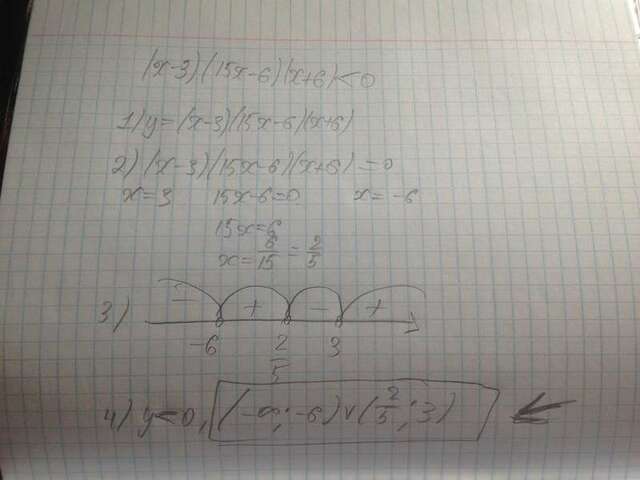 (x-3)(15x-6)(x+6)<0
1) y=(x-3)(15x-6)(x+6)
2) (x-3)(15x-6)(x+6)=0
x=3 15x-6=0 x=-6
15x=6
x=6/15=2/5
3) - + - +
-6 2/5 3
4) y<0, (-∞; -6)∨(2/5; 3)